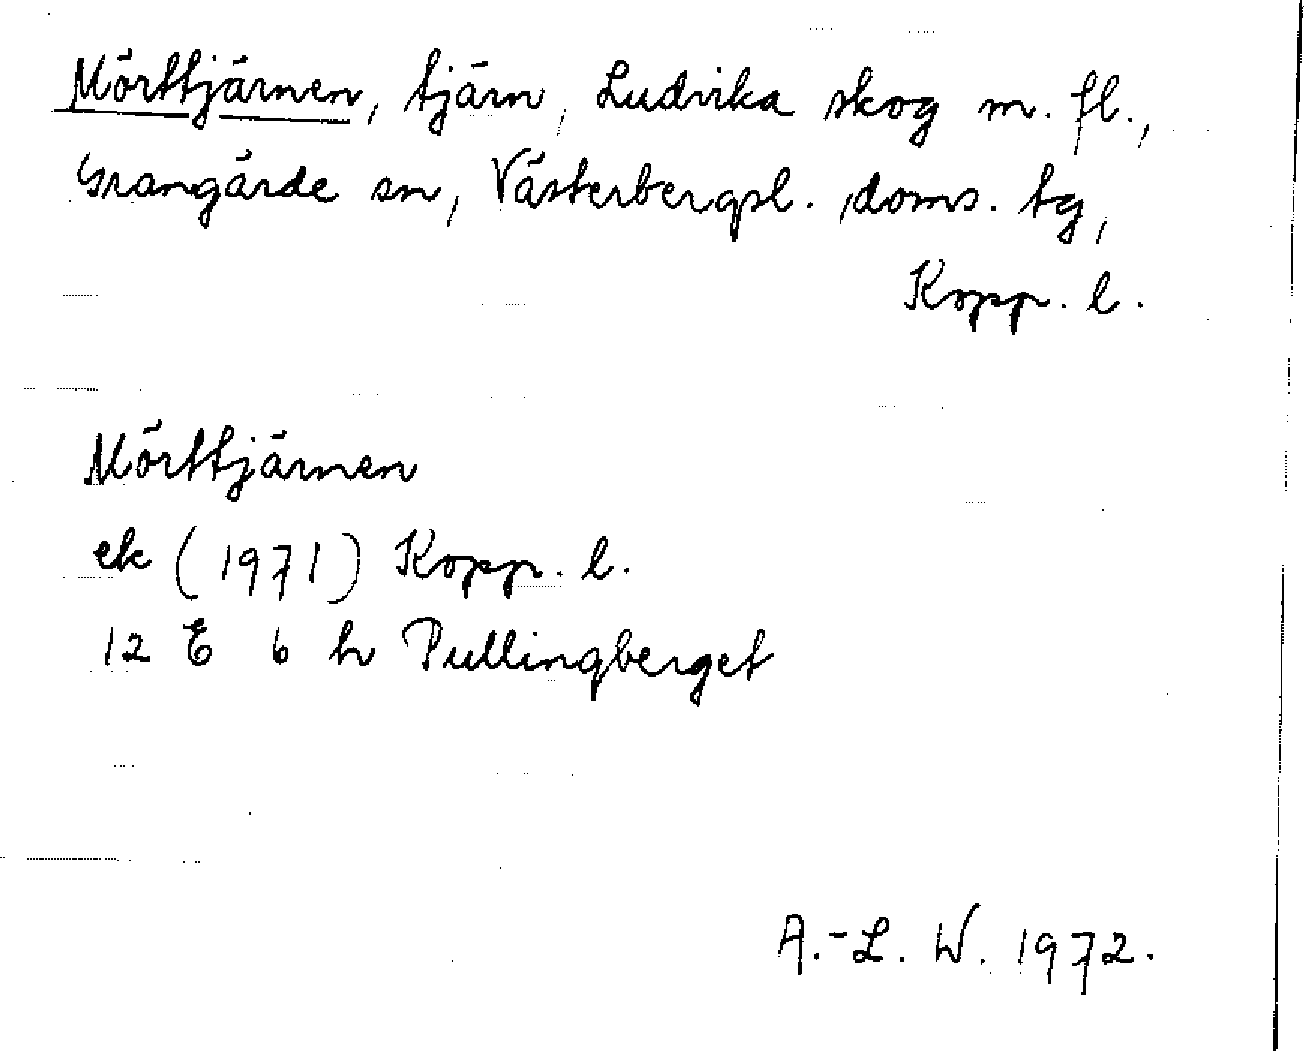 Mörttjärnen, tjärn, Ludvika skog m. fl.,
Grangärde sn, Västerbergsl. doms. tg,
Kopp. l.
Mörttjärnen
ek (1971) Kopp. l.
12 E 6 h Pullingberget
A.-L. W. 1972.